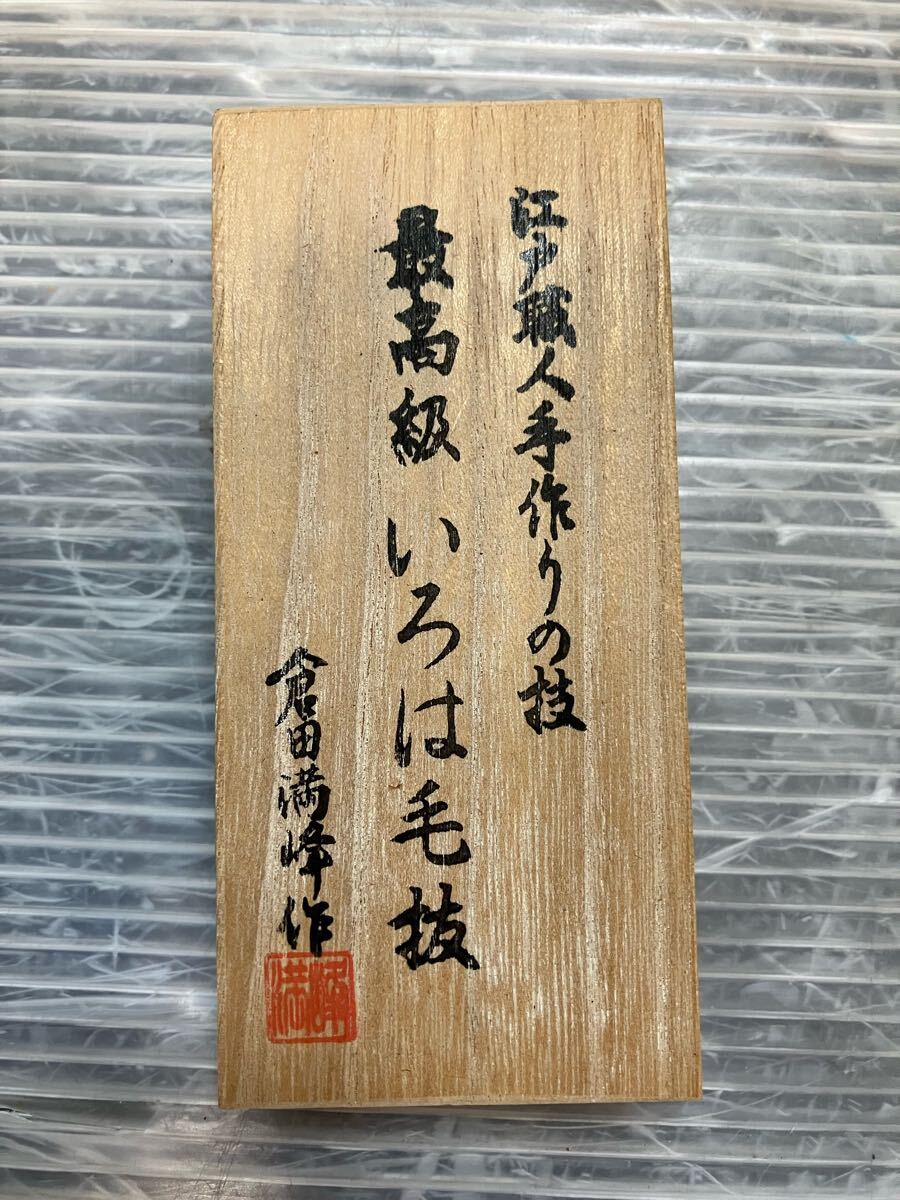 江戸職人手作りの技
最高級 いろは毛抜
倉田満峰作
満峰